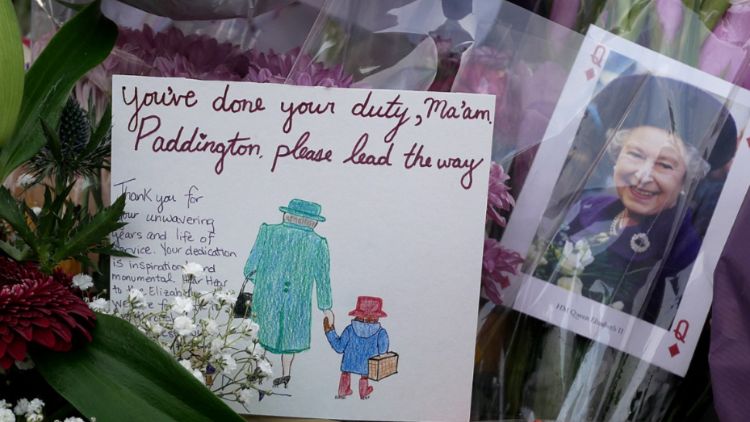 You've done your duty, Ma'am.
Paddington, please lead the way
Thank you for
your unwavering
years and life of
service. Your dedication
is inspirational and
monumental. Hear Hear
to the Elizabeth
we
Q
HM Queen Elizabeth II
Q